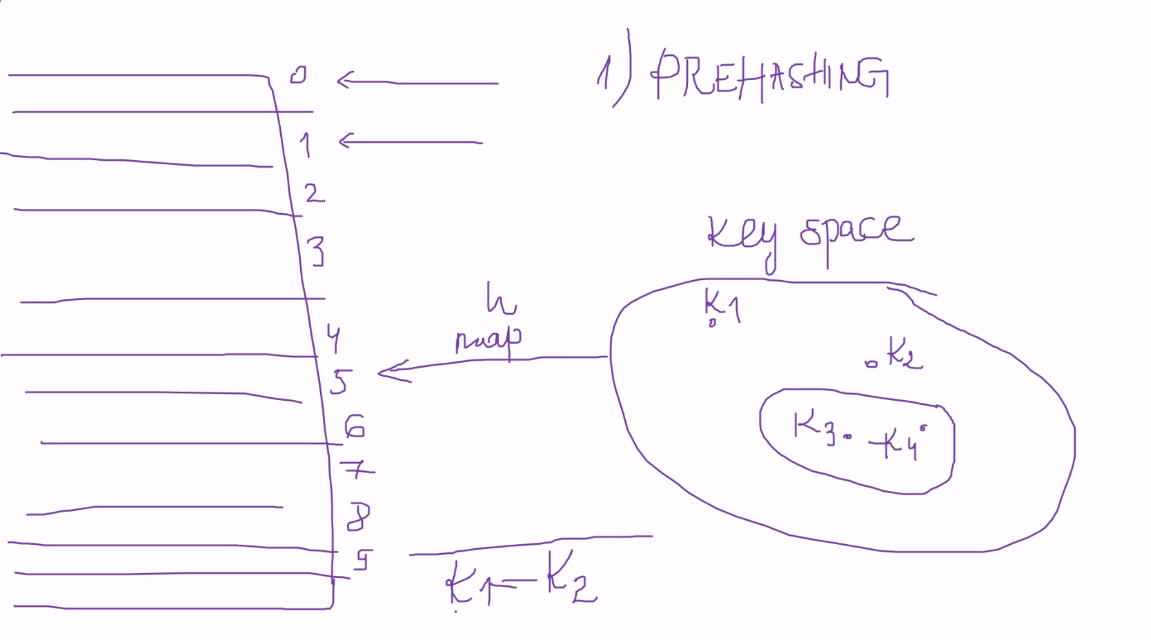 1) PREHASHING
0
1
2
3
4
5
6
7
8
9
Key space
K1
K2
K3
K4
h
map
K1 = K2